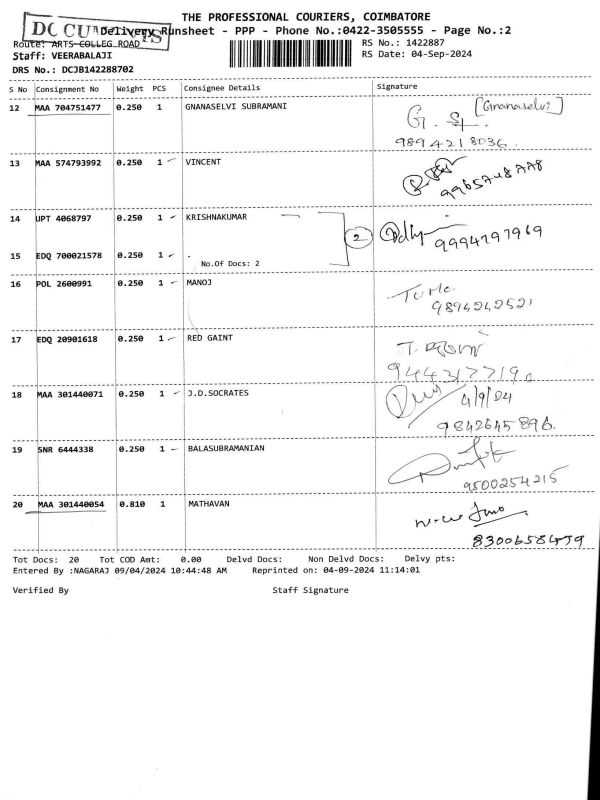 THE PROFESSIONAL COURIERS, COIMBATORE
DOCUMENTS
Delivery Runsheet - PPP - Phone No.:0422-3505555 - Page No.:2
Route: ARTS COLLEG ROAD
RS No.: 1422887
Staff: VEERABALAJI
RS Date: 04-Sep-2024
DRS No.: DCJB142288702
S No Consignment No Weight PCS Consignee Details Signature
12 MAA 704751477 0.250 1 GNANASELVI SUBRAMANI
[Gnanaselvi]
9894218036.
13 MAA 574793992 0.250 1 VINCENT
9965748778
14 UPT 4068797 0.250 1 KRISHNAKUMAR
2
9994797969
15 EDQ 700021578 0.250 1 .
No.Of Docs: 2
16 POL 2600991 0.250 1 MANOJ
9894242521
17 EDQ 20901618 0.250 1 RED GAINT
9443177190
18 MAA 301440071 0.250 1 J.D.SOCRATES
4/9/24
9842645896.
19 SNR 6444338 0.250 1 BALASUBRAMANIAN
9500254215
20 MAA 301440054 0.810 1 MATHAVAN
Tot Docs: 20 Tot COD Amt: 0.00 Delvd Docs: Non Delvd Docs: Delvy pts:
Entered By :NAGARAJ 09/04/2024 10:44:48 AM Reprinted on: 04-09-2024 11:14:01
Verified By Staff Signature